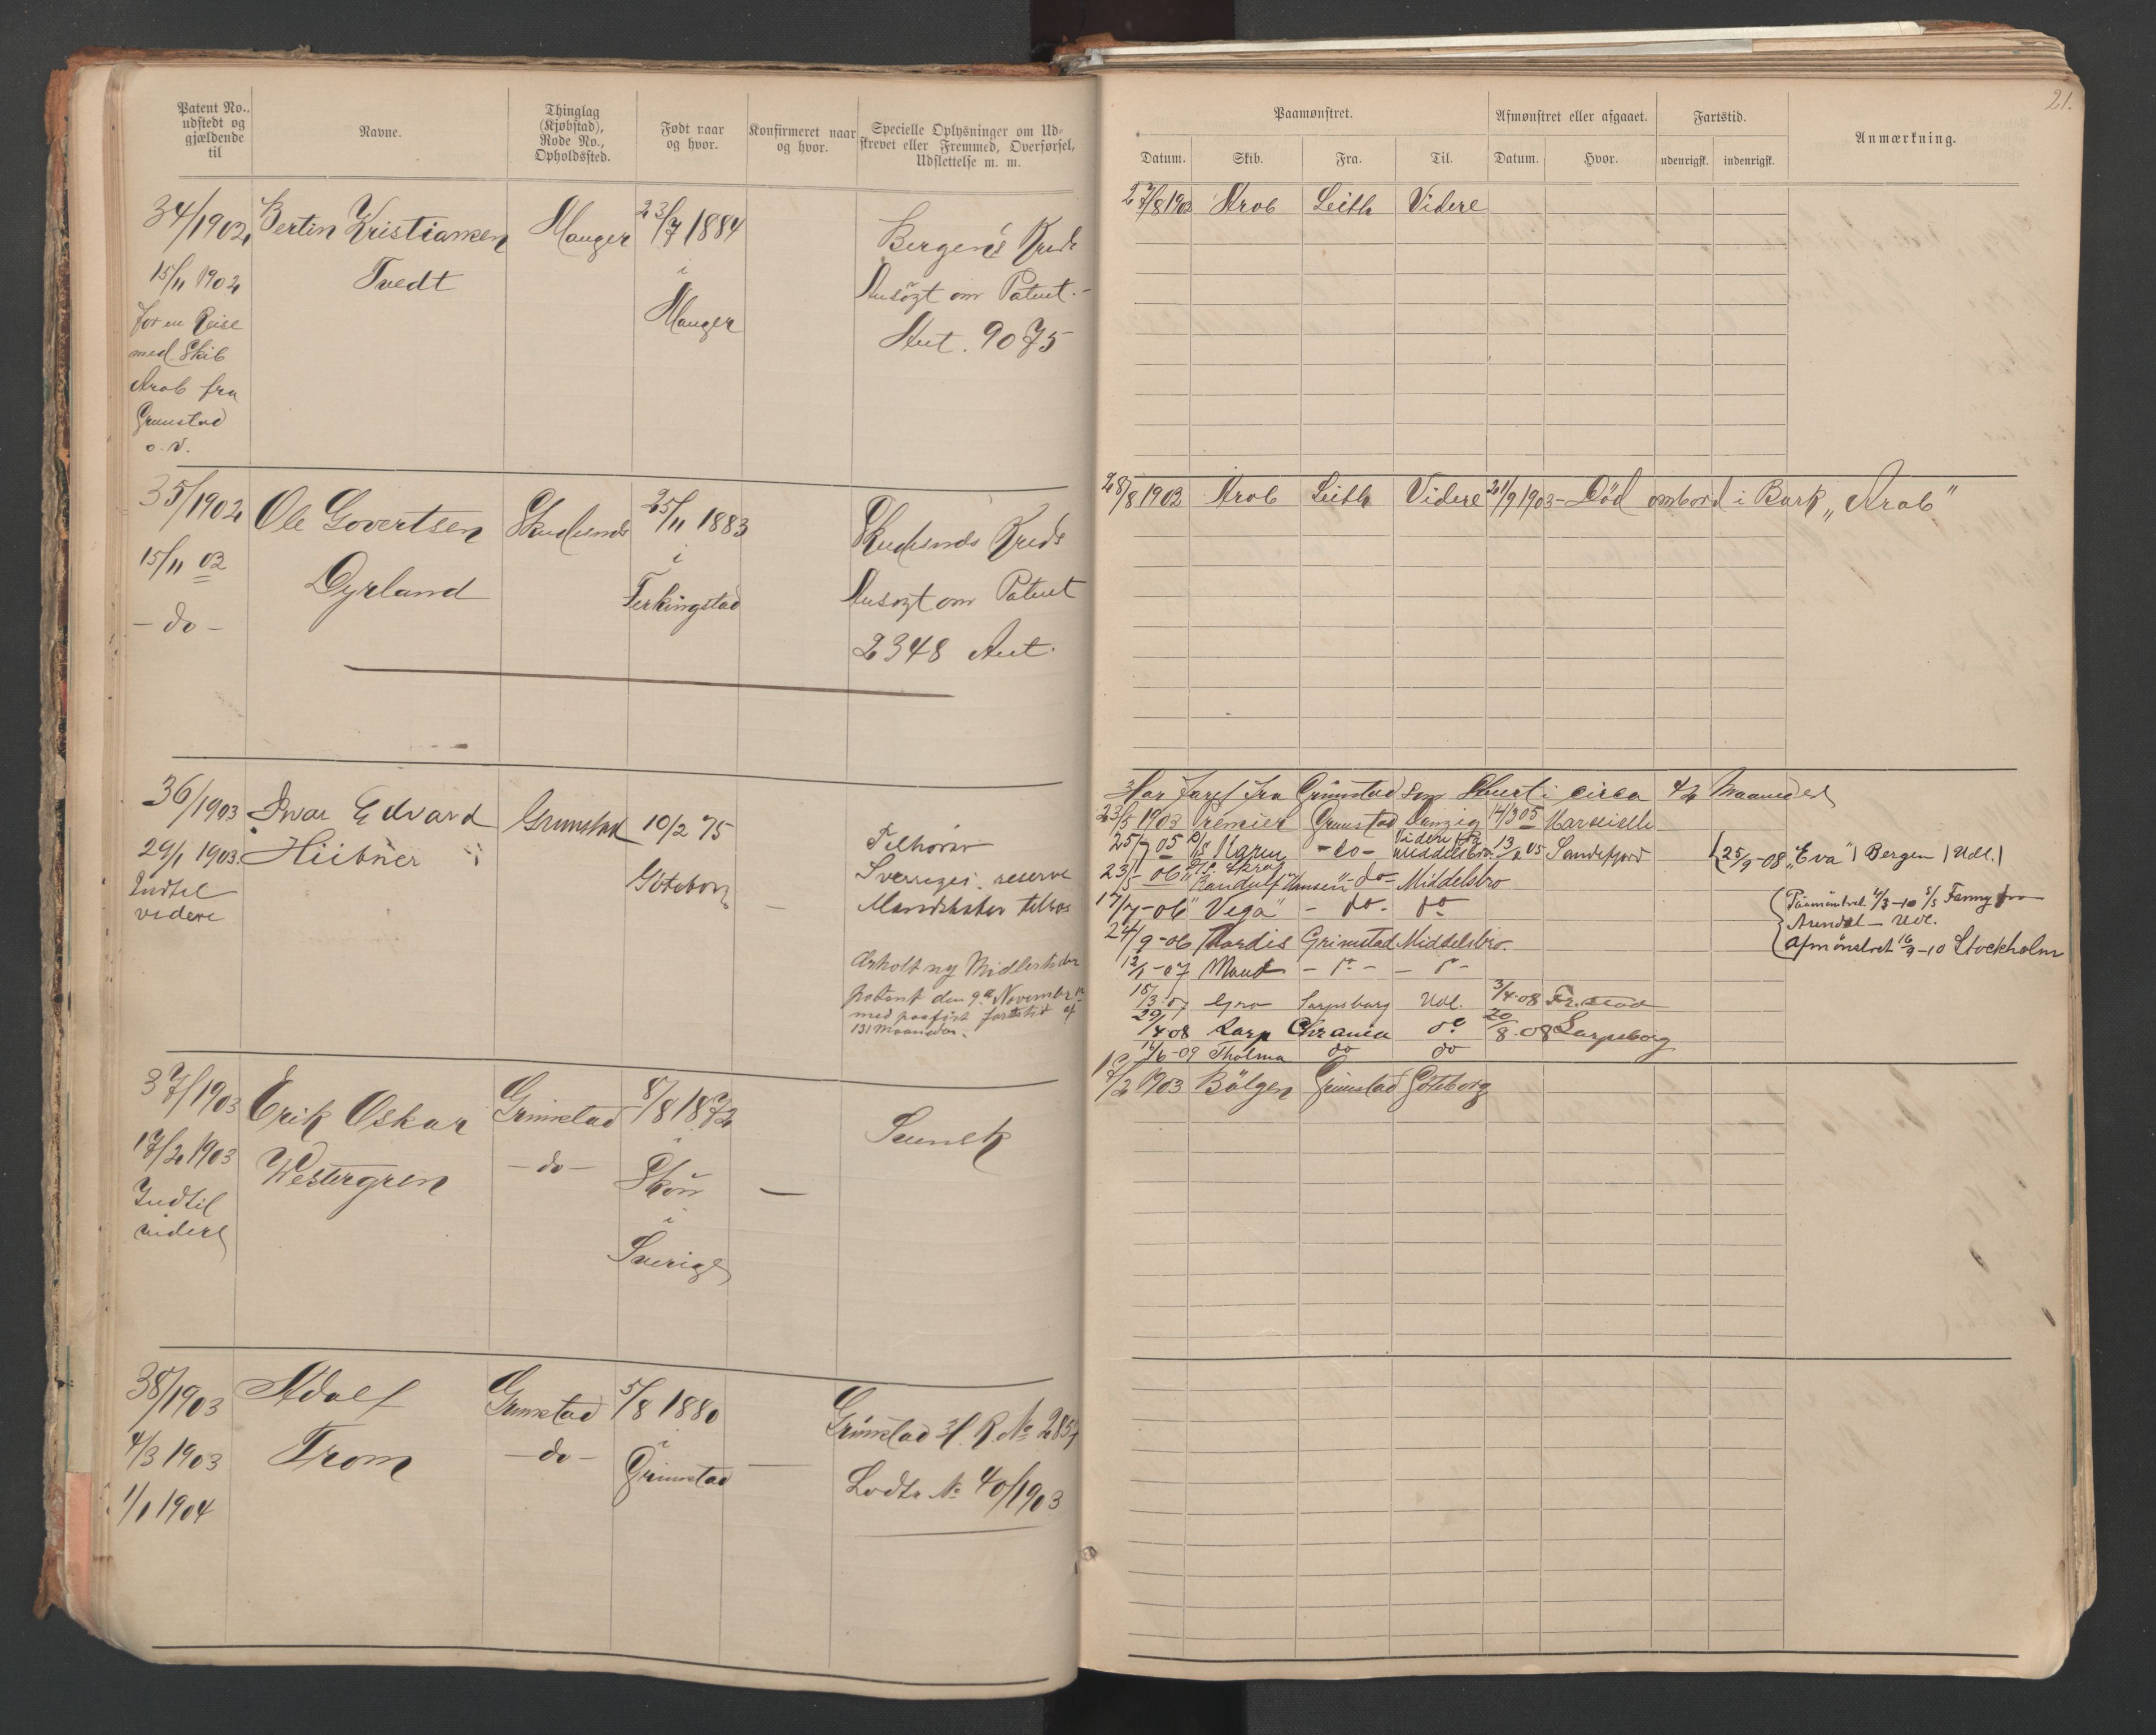 Patent No., udstedt og gjældende til
Navne.
Thinglag (Kjøbstad), Rode No., Opholdssted.
Født naar og hvor.
Konfirmeret naar og hvor.
Specielle Oplysninger om Udskrevet eller Fremmed, Overførsel, Udslettelse m. m.
34/1902
15/11 1902
for en Reise
med Skib
Arab fra
Grimstad
o. v.
Bertin Kristiansen
Tvedt
Manger
23/7 1884
i
Manger
Bergens Kreds
Ansøgt om Patent.-
Ant. 9075
35/1902
15/11 02
- do -
Ole Govertsen
Dyrland
Skudesnæs
25/11 1883
i
Ferkingstad
Skudesnæs Kreds
Ansøgt om Patent
2348 Ant.
36/1903
29/1 1903.
Indtil
videre
Ivar Edvard
Hübner
Grimstad
10/2 75
Göteborg
—
Tilhører
Sveriges reserve
Mandskaber
Erholdt ny Midlertidig
patent den 9de November
med paaført fartstid af
131 maaneder.
37/1903
17/2 1903
Indtil
videre
Erik Oskar
Westergren
Grimstad
- do -
8/8 1872
i
Skön
i
Sverige
—
Svensk
38/1903
4/3 1903
1/1 1904
Adolf
Trom
Grimstad
- do -
5/8 1880
i
Grimstad
—
Grimstad H. R. No 2857
Lodtr No 40/1903
21.
Paamønstret.
Afmønstret eller afgaaet.
Fartstid.
Anmærkning.
Datum.
Skib.
Fra.
Til.
Datum.
Hvor.
udenrigsk.
indenrigsk.
27/8 1902 Arab Leith Videre
28/8 1902 Arab Leith Videre 21/9 1903 - Død ombord i Bark „Arab"
Har faret fra Grimstad som Stuert i circa 42 Maaneder
23/5 1903 Premier Grimstad Danzig 14/3 05 Marseille
25/7 05 D/S Maren - do - Videre fra Middelsbro. 13/2 05 Sandefjord
{25/9 - 08 „Eva" | Bergen | Udl. |
23/5 - 06 „Randulf Hansen" - do - Middelsbro
17/7 - 06 "Vega" - do - do
{Paamönstret 4/3 - 10 5/5 Fanny fra
Arendal - Udl.
Afmönstret 16/9 - 10 Stockholm
24/9 - 06 Hardis Grimstad Middelsbro.
12/1 - 07 Maud - do - - do -
15/3 - 07 Gro Sarpsborg Udl. 3/4 - 08 Fr.stad
29/4 08 Sarp Chrania do 20/8 - 08 Sarpsborg
14/6 - 09 Thelma do do
17/2 1903 Bölgen Grimstad Göteborg